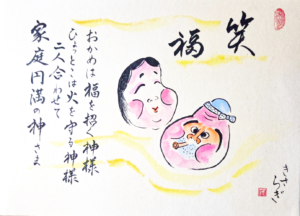 笑
福
おかめは福を招く神様
ひょっとこは火を守る神様
二人合わせて
家庭円満の神さま
きさらぎ